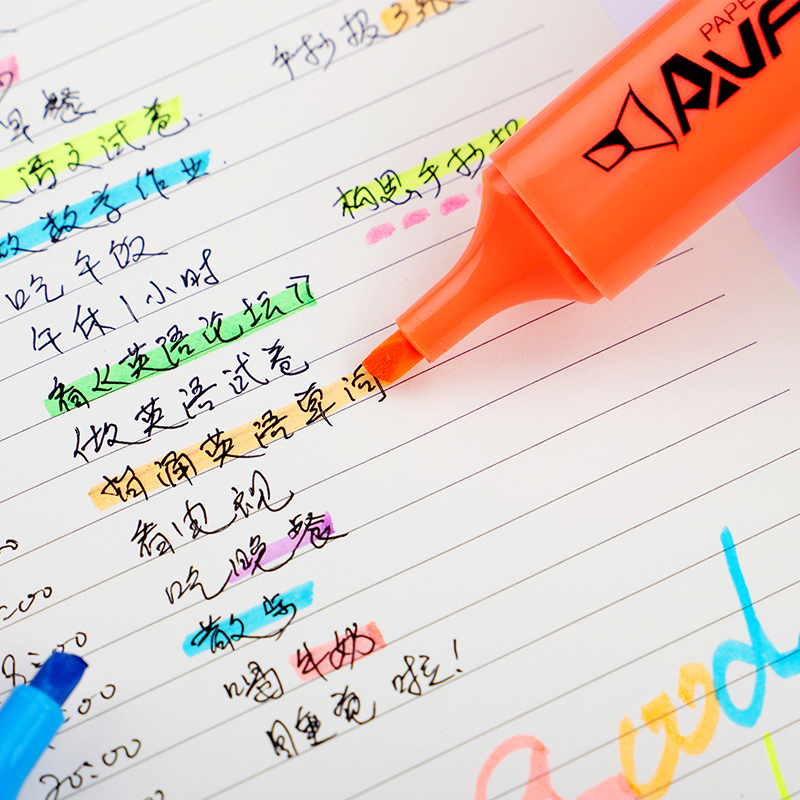 手抄报
早餐
语文试卷.
做数学作业.
构思手抄报
吃午饭
午休1小时
看《英语论坛》
做英语试卷
背诵英语单词
看电视
吃晚餐
散步
喝牛奶
睡觉啦!
20:00
Good
PAPE